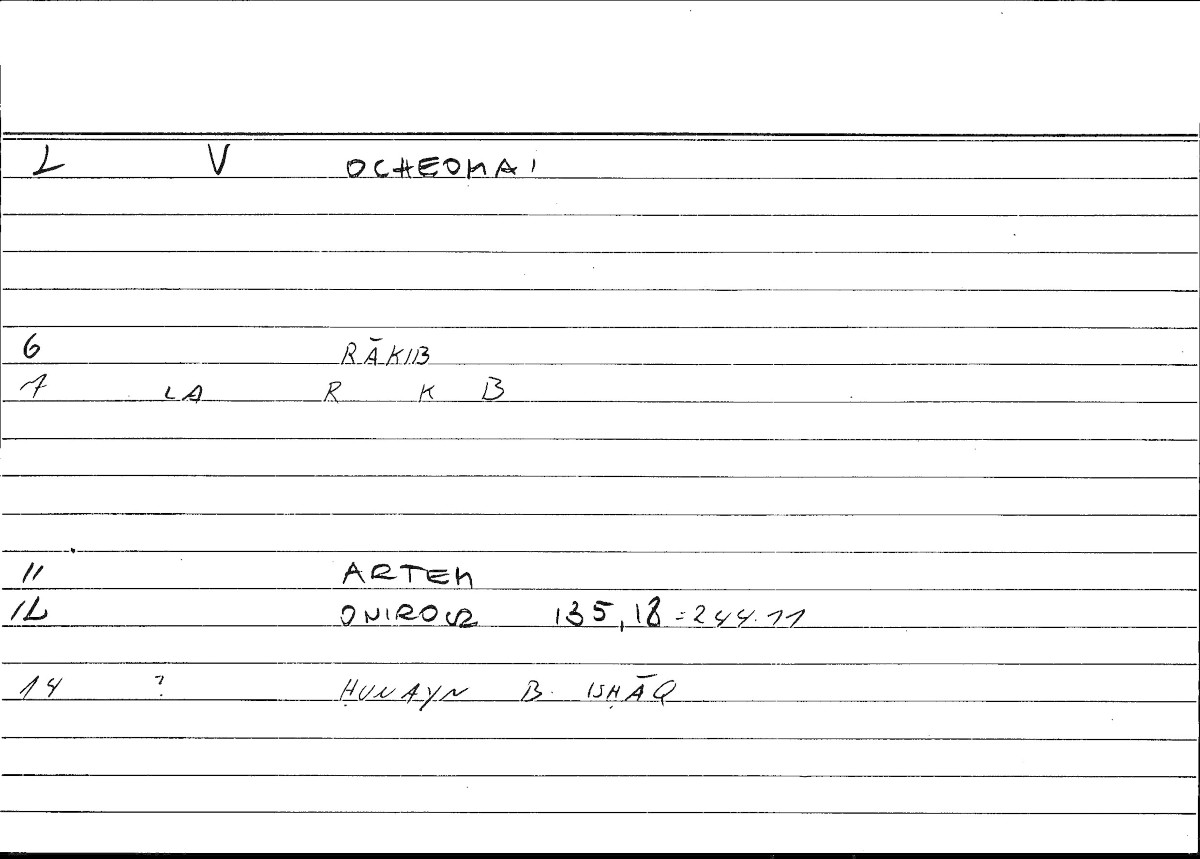 2 V OCHEOMAI
6 RĀKIB
7 LA R K B
11 ARTEM
12 ONIROCR 135,18=244.11
14 ? ḤUNAYN B. ISḤĀQ